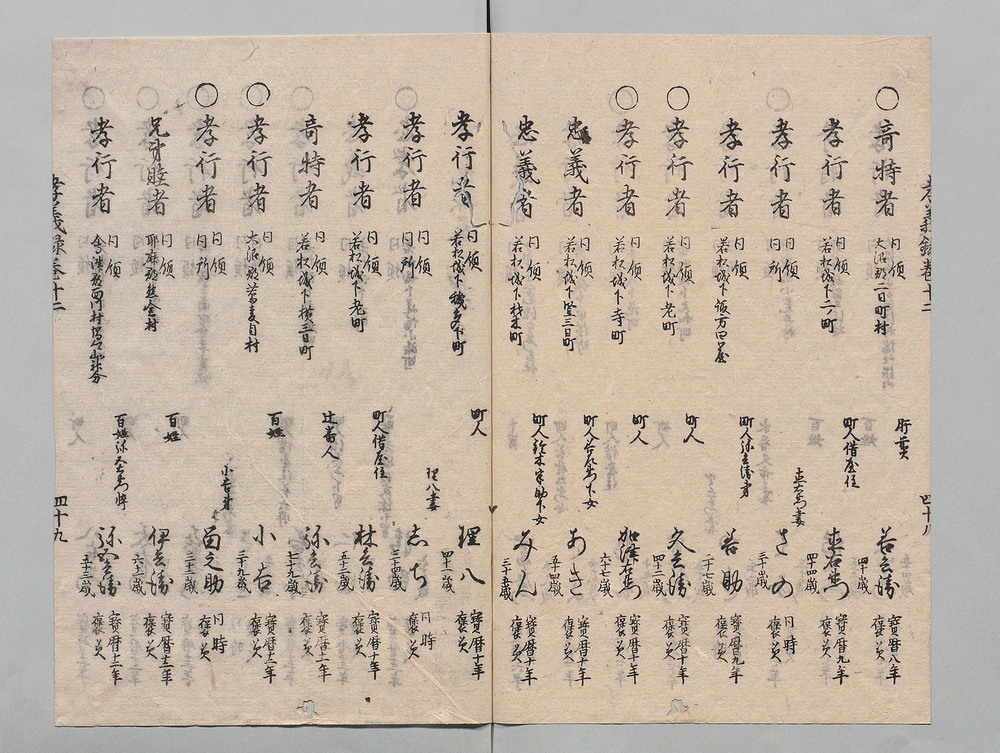 孝義録巻十二
四十八
○奇特者 同領 大沼郡二日町村 肝煎 善兵衛 四十歳 寶暦八年 褒美
孝行者 同領 若松城下二ノ町 町人借屋住 四十四歳 寶暦九年 褒美
○孝行者 同領 同所 妻 さの 三十歳 同時 褒美
孝行者 同領 若松城下 町人弥兵衛弟 善助 二十七歳 寶暦九年 褒美
○孝行者 同領 若松城下老町 町人 文兵衛 四十二歳 寶暦十年 褒美
○孝行者 同領 若松城下寺町 町人 六十一歳 寶暦十年 褒美
忠義者 同領 若松城下竪三日町 下女 あき 五十四歳 寶暦十年 褒美
忠義者 同領 若松城下材木町 町人鈴木宗助下女 みん 三十五歳 寶暦十年 褒美
孝行者 同領 若松城下 町人 理八 四十一歳 寶暦十年 褒美
○孝行者 同領 同所 理八妻 三十四歳 同時 褒美
孝行者 同領 若松城下老町 町人借屋住 林兵衛 五十三歳 寶暦十年 褒美
○奇特者 同領 若松城下横三日町 辻番人 弥兵衛 七十九歳 寶暦十一年 褒美
○孝行者 同領 大沼郡 百姓 小吉 三十九歳 寶暦十二年 褒美
○孝行者 同領 同所 小吉弟 留之助 三十二歳 同時 褒美
○兄弟睦者 同領 耶麻郡 百姓 伊兵衛 六十三歳 寶暦十二年 褒美
○孝行者 同領 五十三歳 寶暦十二年 褒美
孝義録巻十二
四十九